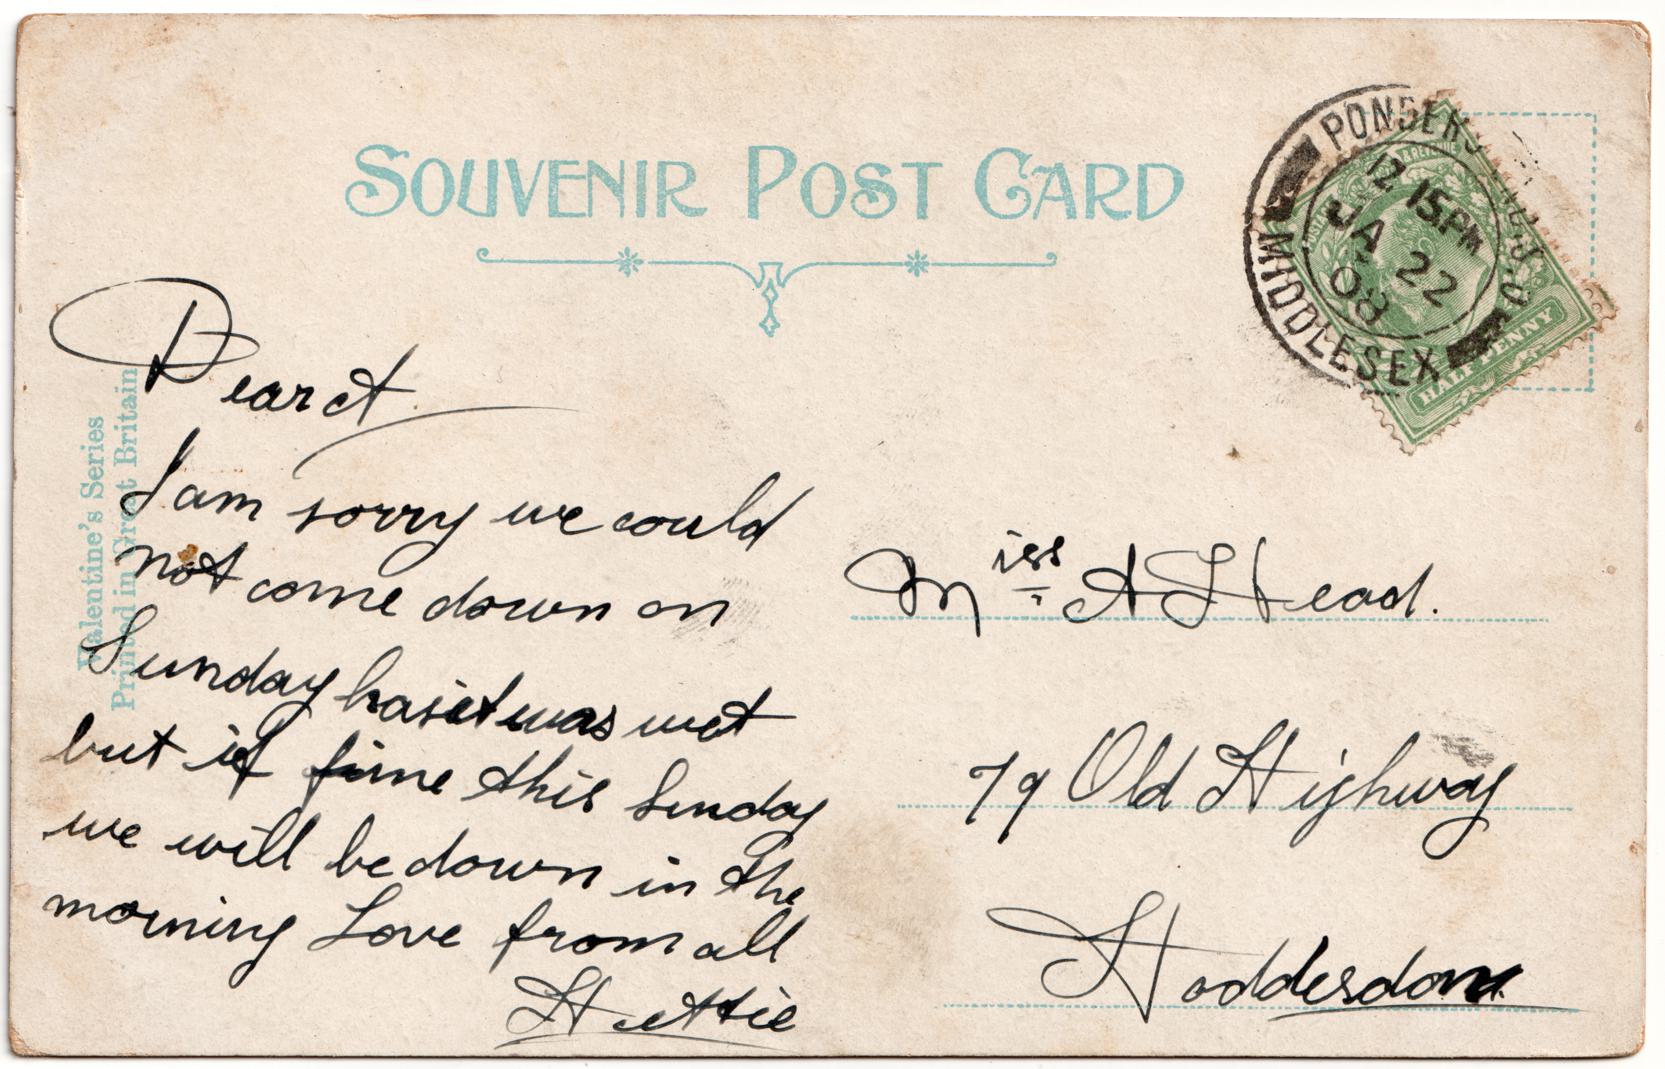 SOUVENIR POST CARD
PONDERS
MIDDLESEX
12 15PM
JA 22
08
HALF PENNY
Valentine's Series
Printed in Great Britain
Dear
I am sorry we could
not come down on
Sunday has it was wet
but if fine this Sunday
we will be down in the
morning Love from all
Hettie
Miss A Head.
79 Old Highway
Hoddesdon